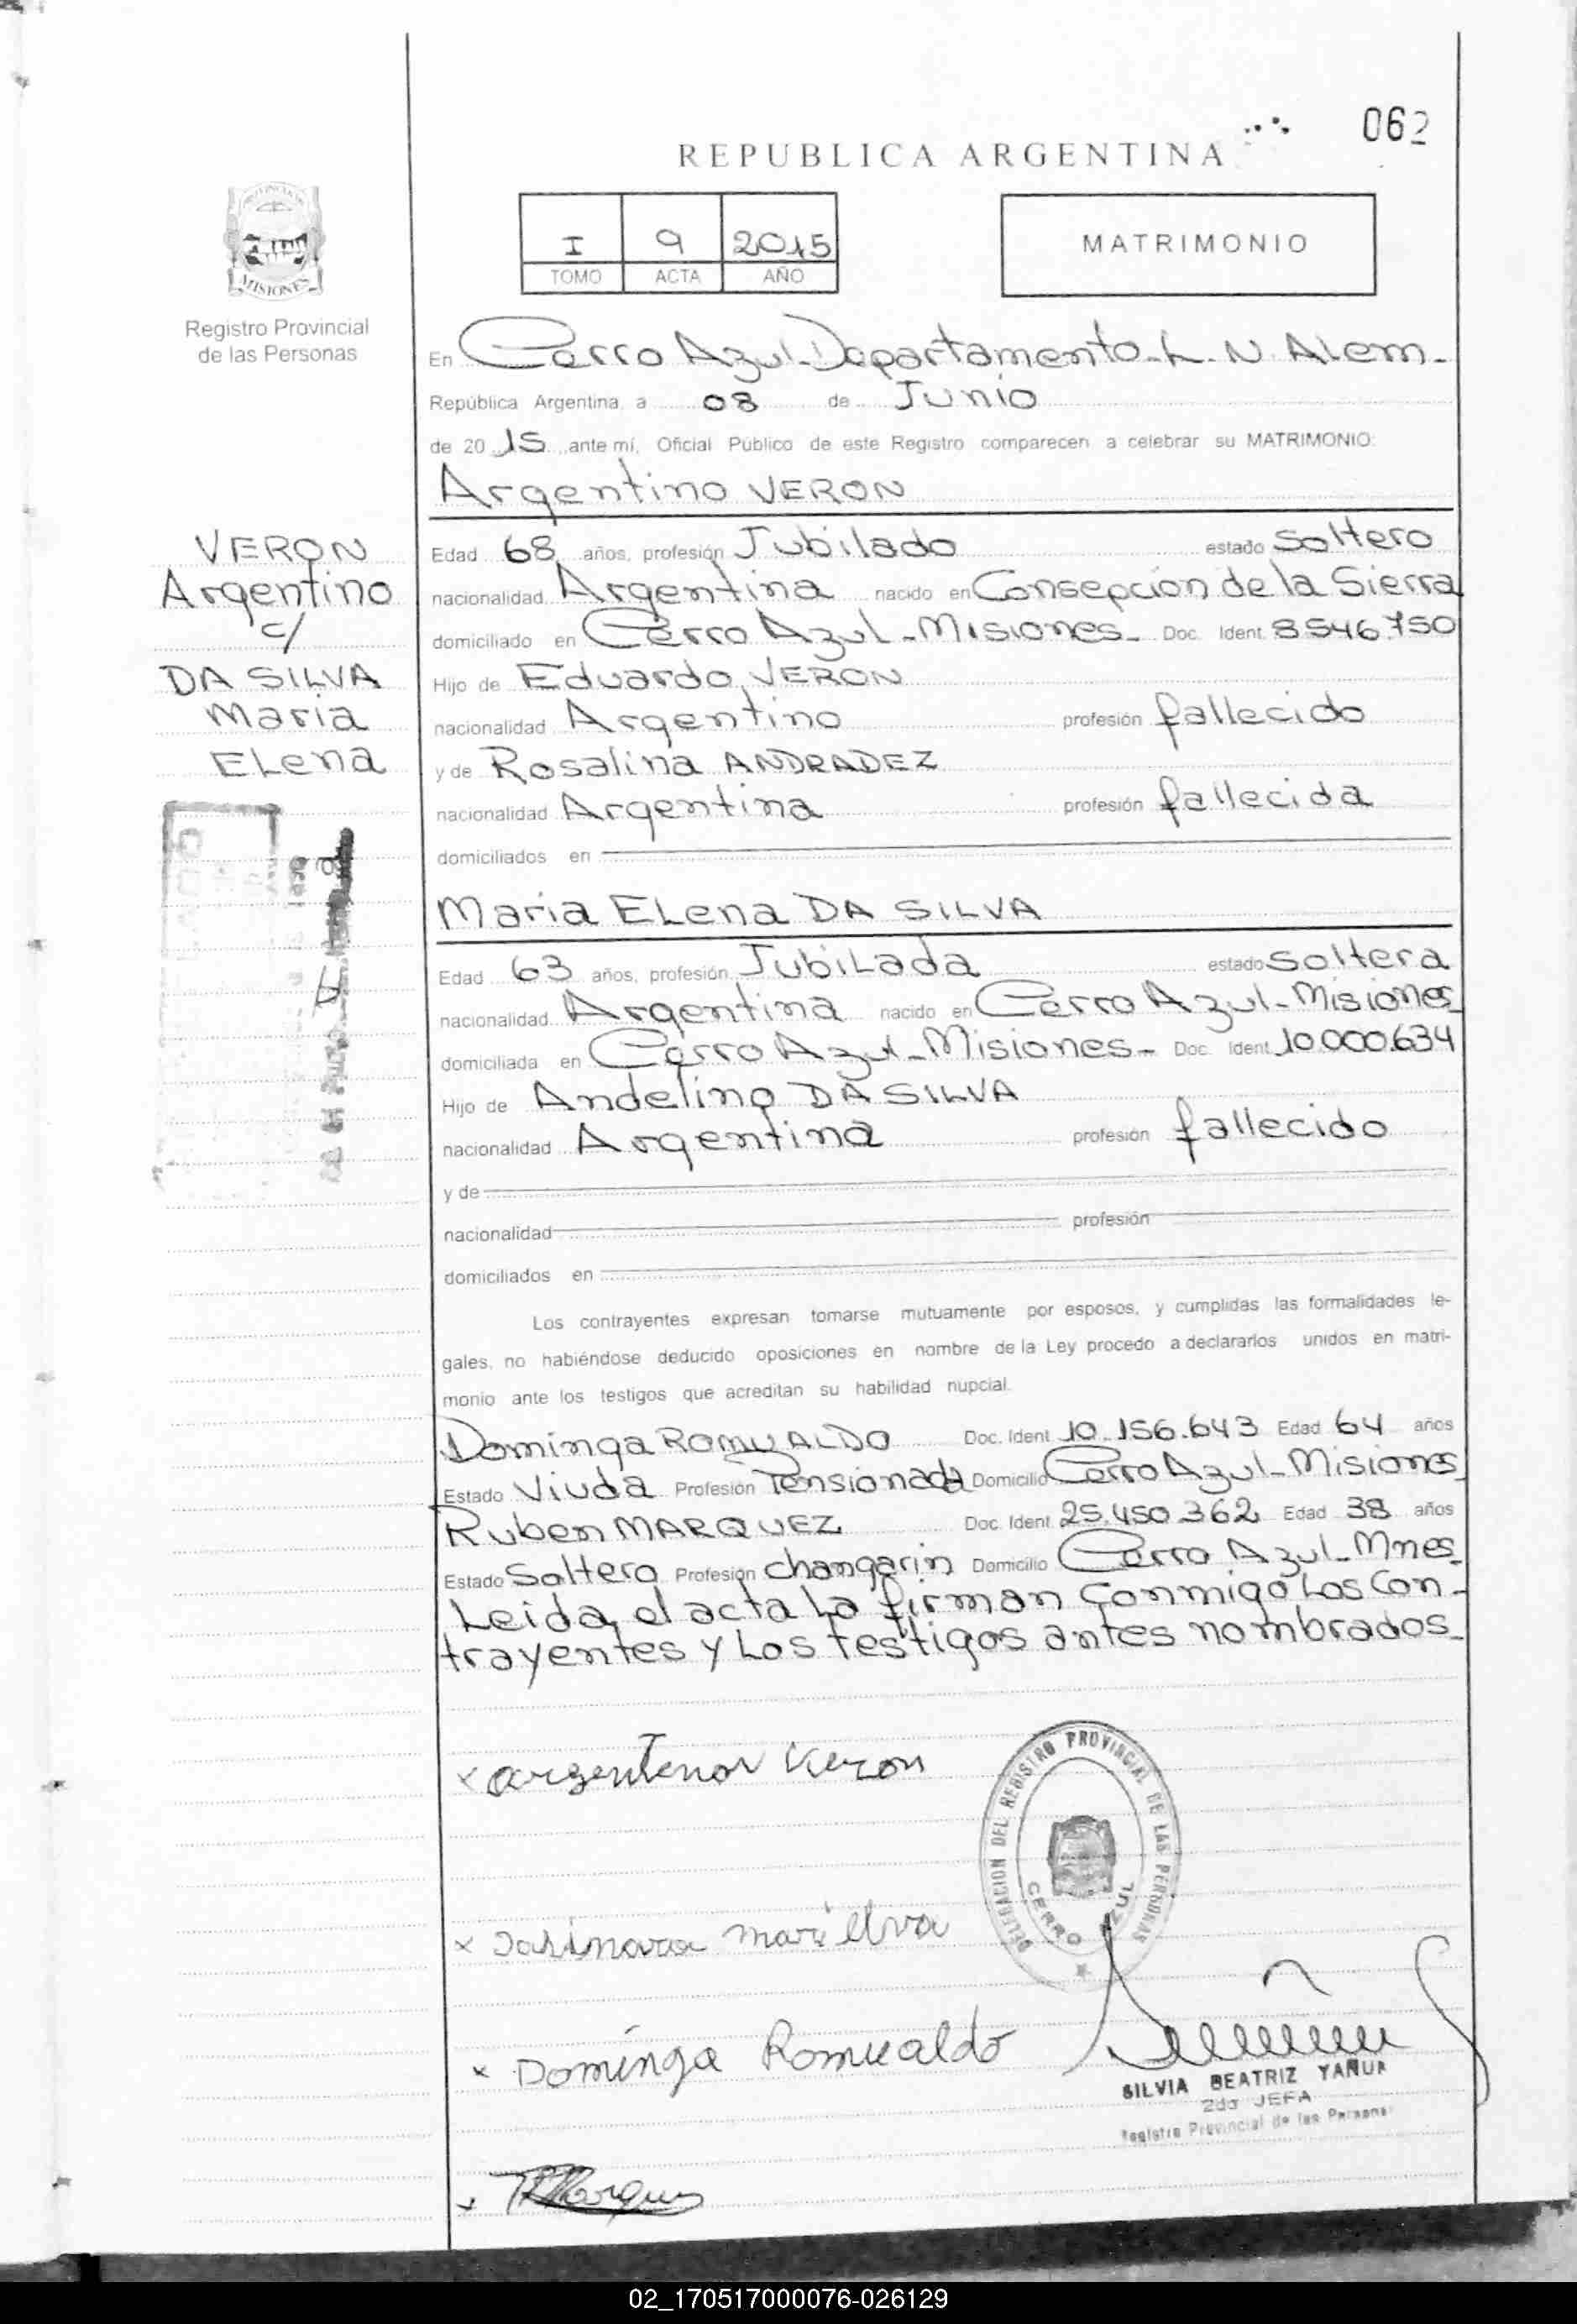 062
REPUBLICA ARGENTINA
I 9 2015
TOMO ACTA AÑO
MATRIMONIO
MISIONES
Registro Provincial
de las Personas
En Cerro Azul-Departamento-L.N.Alem-
República Argentina, a 08 de Junio
de 20 15 ante mí, Oficial Público de este Registro comparecen a celebrar su MATRIMONIO:
Argentino VERON
VERON
Argentino
c/
DA SILVA
Maria
ELena
Edad 68 años, profesión Jubilado estado Soltero
nacionalidad Argentina nacido en Consepcion de la Sierra
domiciliado en Cerro Azul-Misiones- Doc. Ident. 8.546.750
Hijo de Eduardo VERON
nacionalidad Argentino profesión fallecido
y de Rosalina ANDRADEZ
nacionalidad Argentina profesión fallecida
domiciliados en
Maria ELena DA SILVA
Edad 63 años, profesión JubiLada estado Soltera
nacionalidad Argentina nacido en Cerro Azul-Misiones
domiciliada en Cerro Azul-Misiones- Doc. Ident. 10.000.634
Hijo de Andelino DA SILVA
nacionalidad Argentina profesión fallecido
y de
nacionalidad profesión
domiciliados en
Los contrayentes expresan tomarse mutuamente por esposos, y cumplidas las formalidades le-
gales, no habiéndose deducido oposiciones en nombre de la Ley procedo a declararlos unidos en matri-
monio ante los testigos que acreditan su habilidad nupcial.
Dominga ROMUALDO Doc. Ident. 10.156.643 Edad 64 años
Estado Viuda Profesión Pensionada Domicilio Cerro Azul-Misiones
Ruben MARQUEZ Doc. Ident. 25.450.362 Edad 38 años
Estado Soltero Profesión changarin Domicilio Cerro Azul-Mnes
Leida el acta La firman conmigo Los Con-
trayentes y Los testigos antes nombrados-
x argentenor veron
DELEGACION DEL REGISTRO PROVINCIAL DE LAS PERSONAS
CERRO AZUL
x
x Dominga Romualdo
SILVIA BEATRIZ YAÑUK
2da JEFA
Registro Provincial de las Personas
x Marquez
02_170517000076-026129